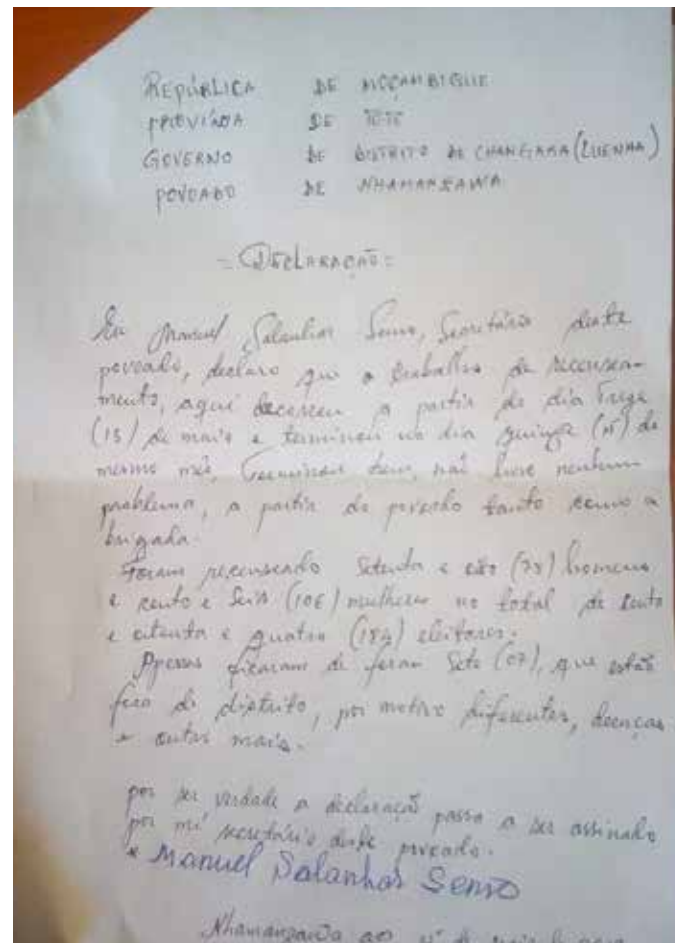 REPÚBLICA DE MOÇAMBIQUE
PROVÍNCIA DE TETE
GOVERNO DE DISTRITO DE CHANGARA (LUENHA)
POVOADO DE NHAMANZAWA
= DECLARAÇÃO =
Eu Manuel Salanhar Senso, Secretário deste
povoado, declaro que o trabalho de recensea-
mento, aqui decorreu a partir do dia treze
(13) de maio e terminou no dia quinze (15) do
mesmo mês, Terminou bem, não houve nenhum
problema, a partir do povoado tanto como a
brigada.
Foram recenseado Setenta e oito (78) homens
e cento e Seis (106) mulheres no total de cento
e oitenta e quatro (184) eleitores.
ficaram de foram Sete (07), que estão
fora do distrito, por motivo diferentes, doenças
e outas mais.
por ser verdade a declaração passo a ser assinado
por mi secretário deste povoado.
* Manuel Salanhar Senso
Nhamanzawa ao de maio